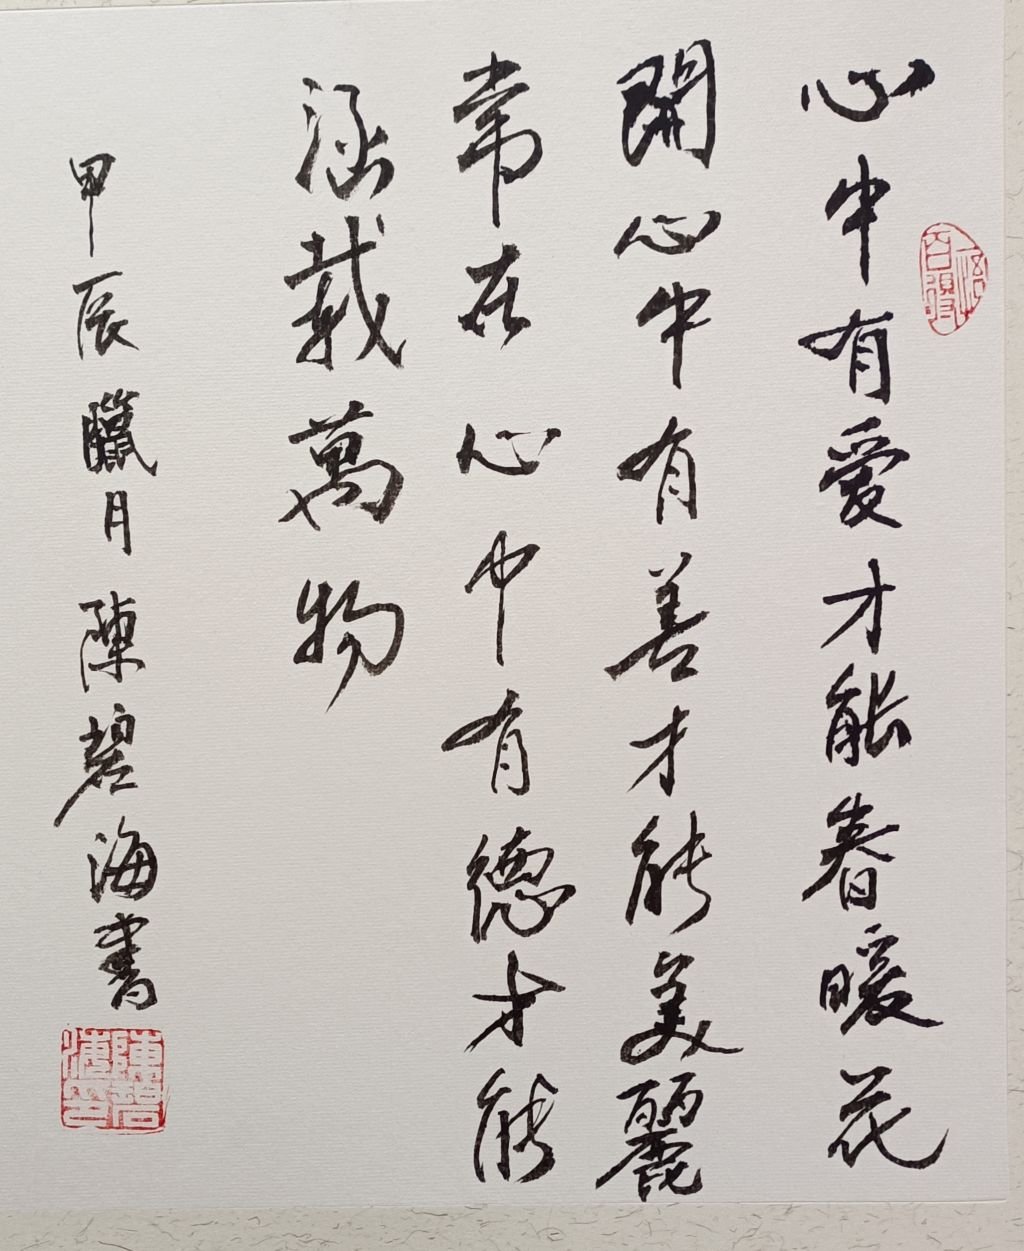 心中有愛才能春暖花
開心中有善才能美麗
常在心中有德才能
涵載萬物
甲辰臘月陳碧海書
陳碧海印